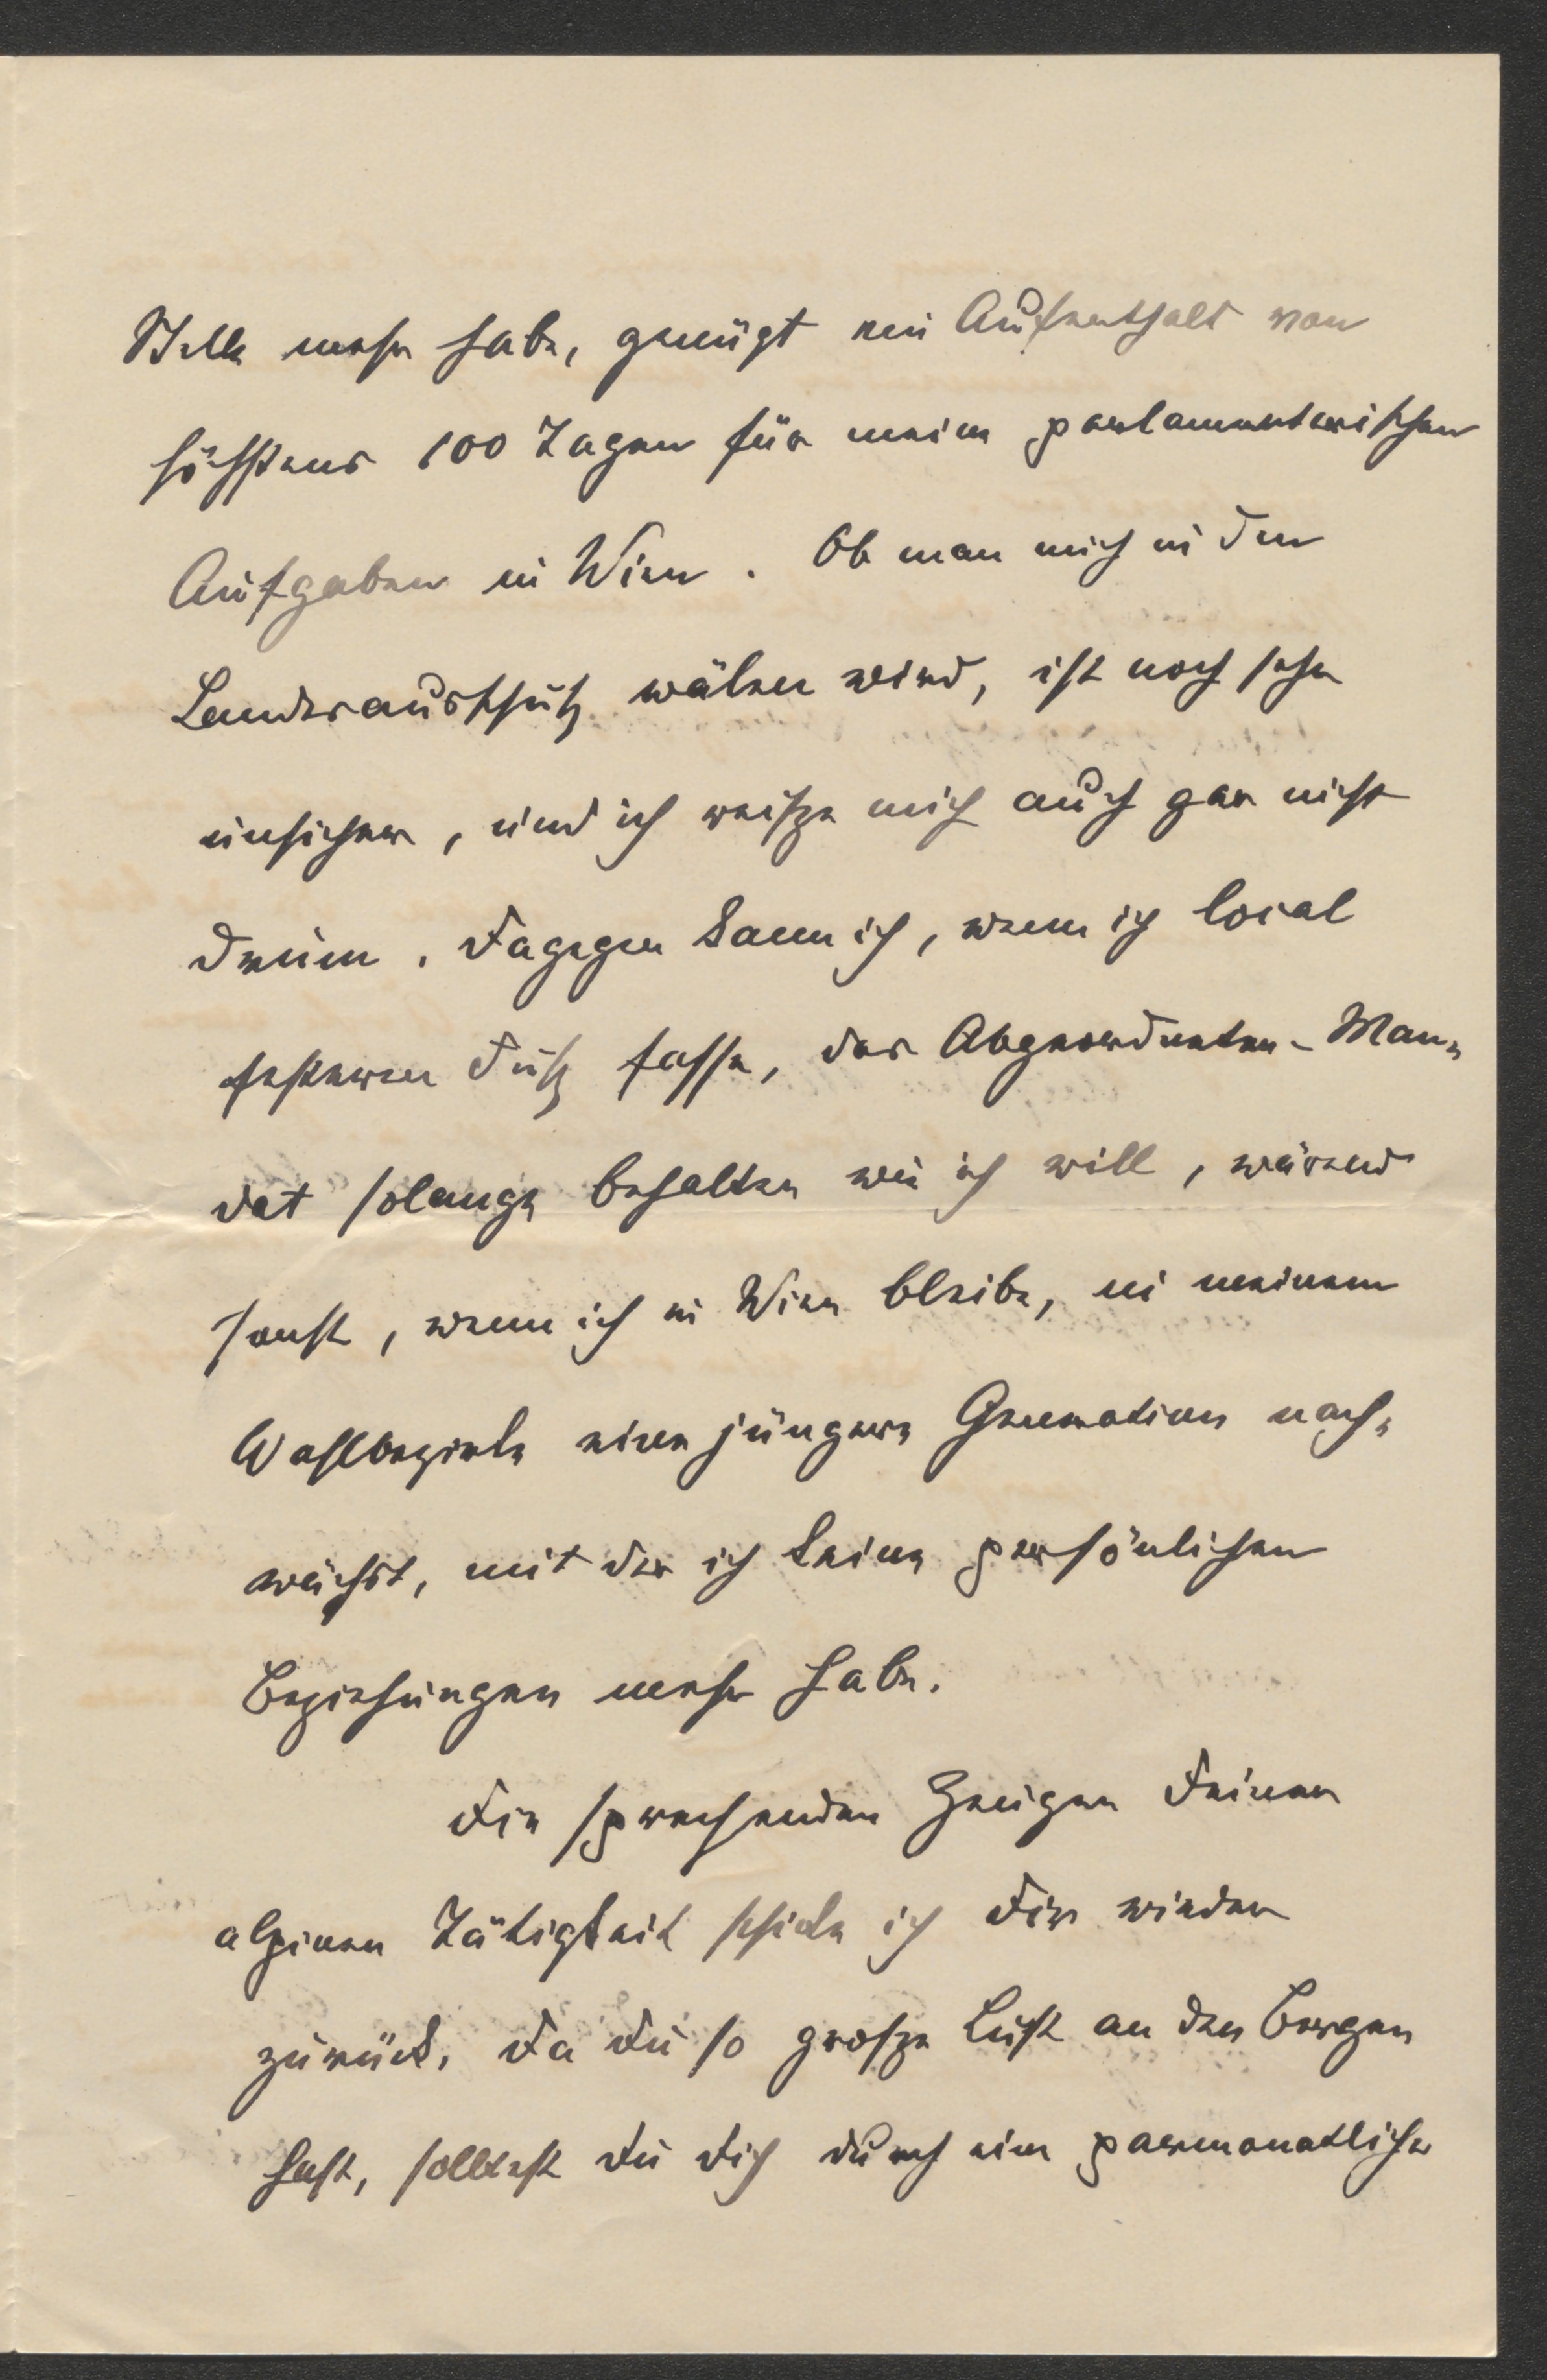 Stelle mehr habe, genügt ein Aufenthalt von
höchstens 100 Tagen für meine parlamentarischen
Aufgaben in Wien. Ob man mich in den
Landesausschuß wälen wird, ist noch sehr
unsicher, und ich reiße mich auch gar nicht
drum. Dagegen kann ich, wenn ich local
festeren Fuß fasse, das Abgeordneten-Man-
dat solange behalten wie ich will, wärend
sonst, wenn ich in Wien bleibe, in meinem
Wahlbezirke eine jüngere Generation nach-
wächst, mit der ich keine persönlichen
Beziehungen mehr habe.
Die sprechenden Zeugen Deiner
alpinen Tätigkeit schicke ich Dir wieder
zurück. Da Du so große Lust an den Bergen
hast, solltest Du Dich durch eine parmonatliche